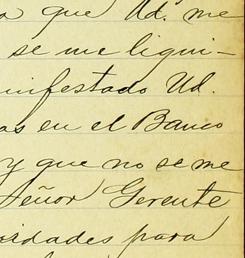 a que Ud. me
se me liqui-
nifestado Ud.
as en el Banco
y que no se me
Señor Gerente
sidades para